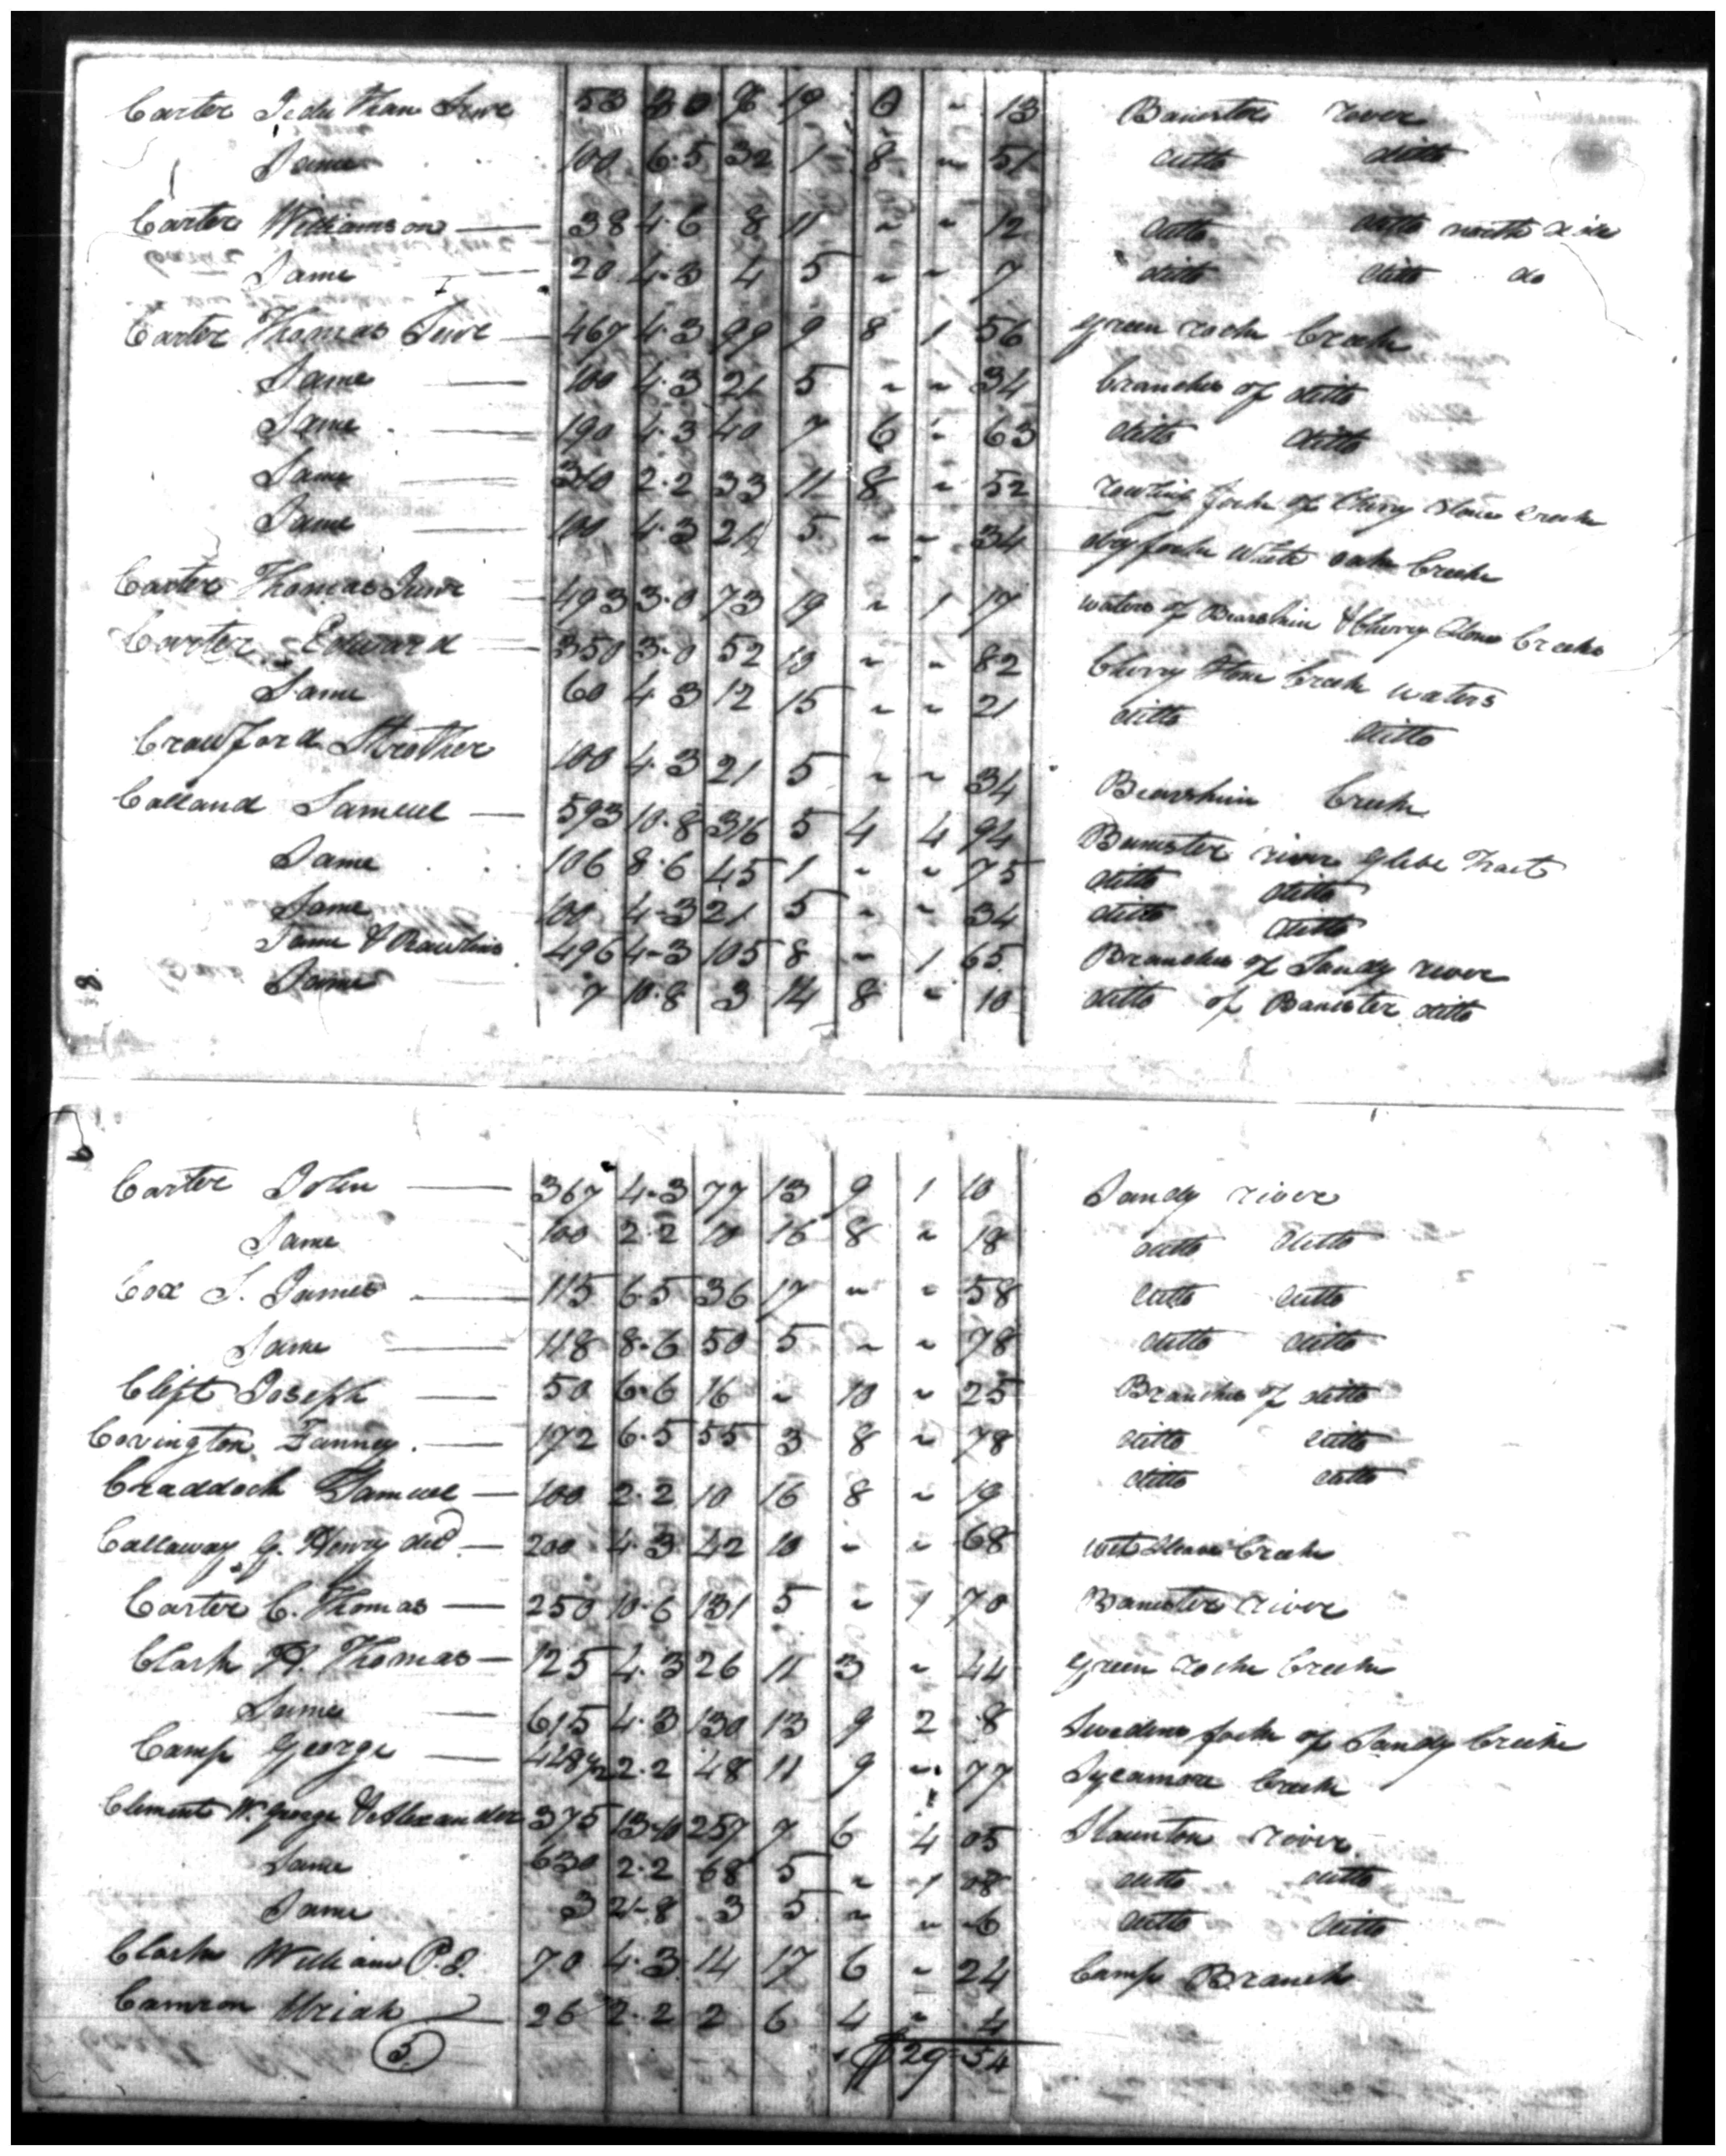 Carter Jeduthan Junr 53 3 0 7 19 0 ~ 13 Banister river
Same 100 6·5 32 1 8 ~ 51 ditto ditto
Carter Williamson 38 4·6 8 11 ~ ~ 12 ditto ditto north side
Same 20 4·3 4 5 ~ ~ 7 ditto ditto do
Carter Thomas Junr 467 4·3 99 9 8 1 56 green rock Creek
Same 100 4·3 21 5 ~ ~ 34 branches of ditto
Same 190 4·3 40 7 6 ~ 63 ditto ditto
Same 310 2·2 33 11 8 ~ 52 fork of Cherry Stone Creek
Same 100 4·3 21 5 ~ ~ 34 dry fork White oak Creek
Carter Thomas Junr 493 3·0 73 19 ~ 1 17 waters of Bearskin & Cherry Stone Creeks
Carter Edward 350 3·0 52 10 ~ ~ 82 Cherry Stone Creek waters
Same 60 4·3 12 15 ~ ~ 21 ditto ditto
Crawford Strother 100 4·3 21 5 ~ ~ 34 Bearskin Creek
Calland Samuel 593 10·8 316 5 4 4 94 Banister river glebe Tract
Same 106 8·6 45 1 ~ ~ 75 ditto ditto
Same 100 4-3 21 5 ~ ~ 34 ditto ditto
Same & Rawlins 496 4-3 105 8 ~ 1 65 Branches of Sandy river
Same 7 10·8 3 14 8 ~ 10 ditto of Banister ditto
Carter John 367 4-3 77 13 9 1 10 Sandy river
Same 100 2·2 10 16 8 ~ 18 ditto ditto
Cox S. James 115 6·5 36 17 ~ ~ 58 ditto ditto
Same 118 8·6 50 5 ~ ~ 78 ditto ditto
Clift Joseph 50 6·6 16 ~ 10 ~ 25 Branches of ditto
Covington Fanney 172 6·5 55 3 8 ~ 78 ditto ditto
Craddock Samuel 100 2·2 10 16 8 ~ 19 ditto ditto
Callaway G. Henry decd 200 4·3 42 10 ~ ~ 68 wet Sleave Creek
Carter C. Thomas 250 10·6 131 5 ~ 1 70 Banister river
Clark H. Thomas 125 4·3 26 11 3 ~ 44 green rock Creek
Same 615 4·3 130 13 9 2 8 fork of Sandy Creek
Camp George 448½ 2·2 48 11 9 ~ 77 Sycamore Creek
Clement W. George & Alexander 375 13·10 257 7 6 4 05 Staunton river
Same 630 2·2 68 5 ~ 1 08 ditto ditto
Same 3 21-8 3 5 ~ ~ 6 ditto ditto
Clark William P.S. 70 4·3 14 17 6 ~ 24 Camp Branch
Camron Uriah 26 2·2 2 6 4 ~ 4
5 $29-54